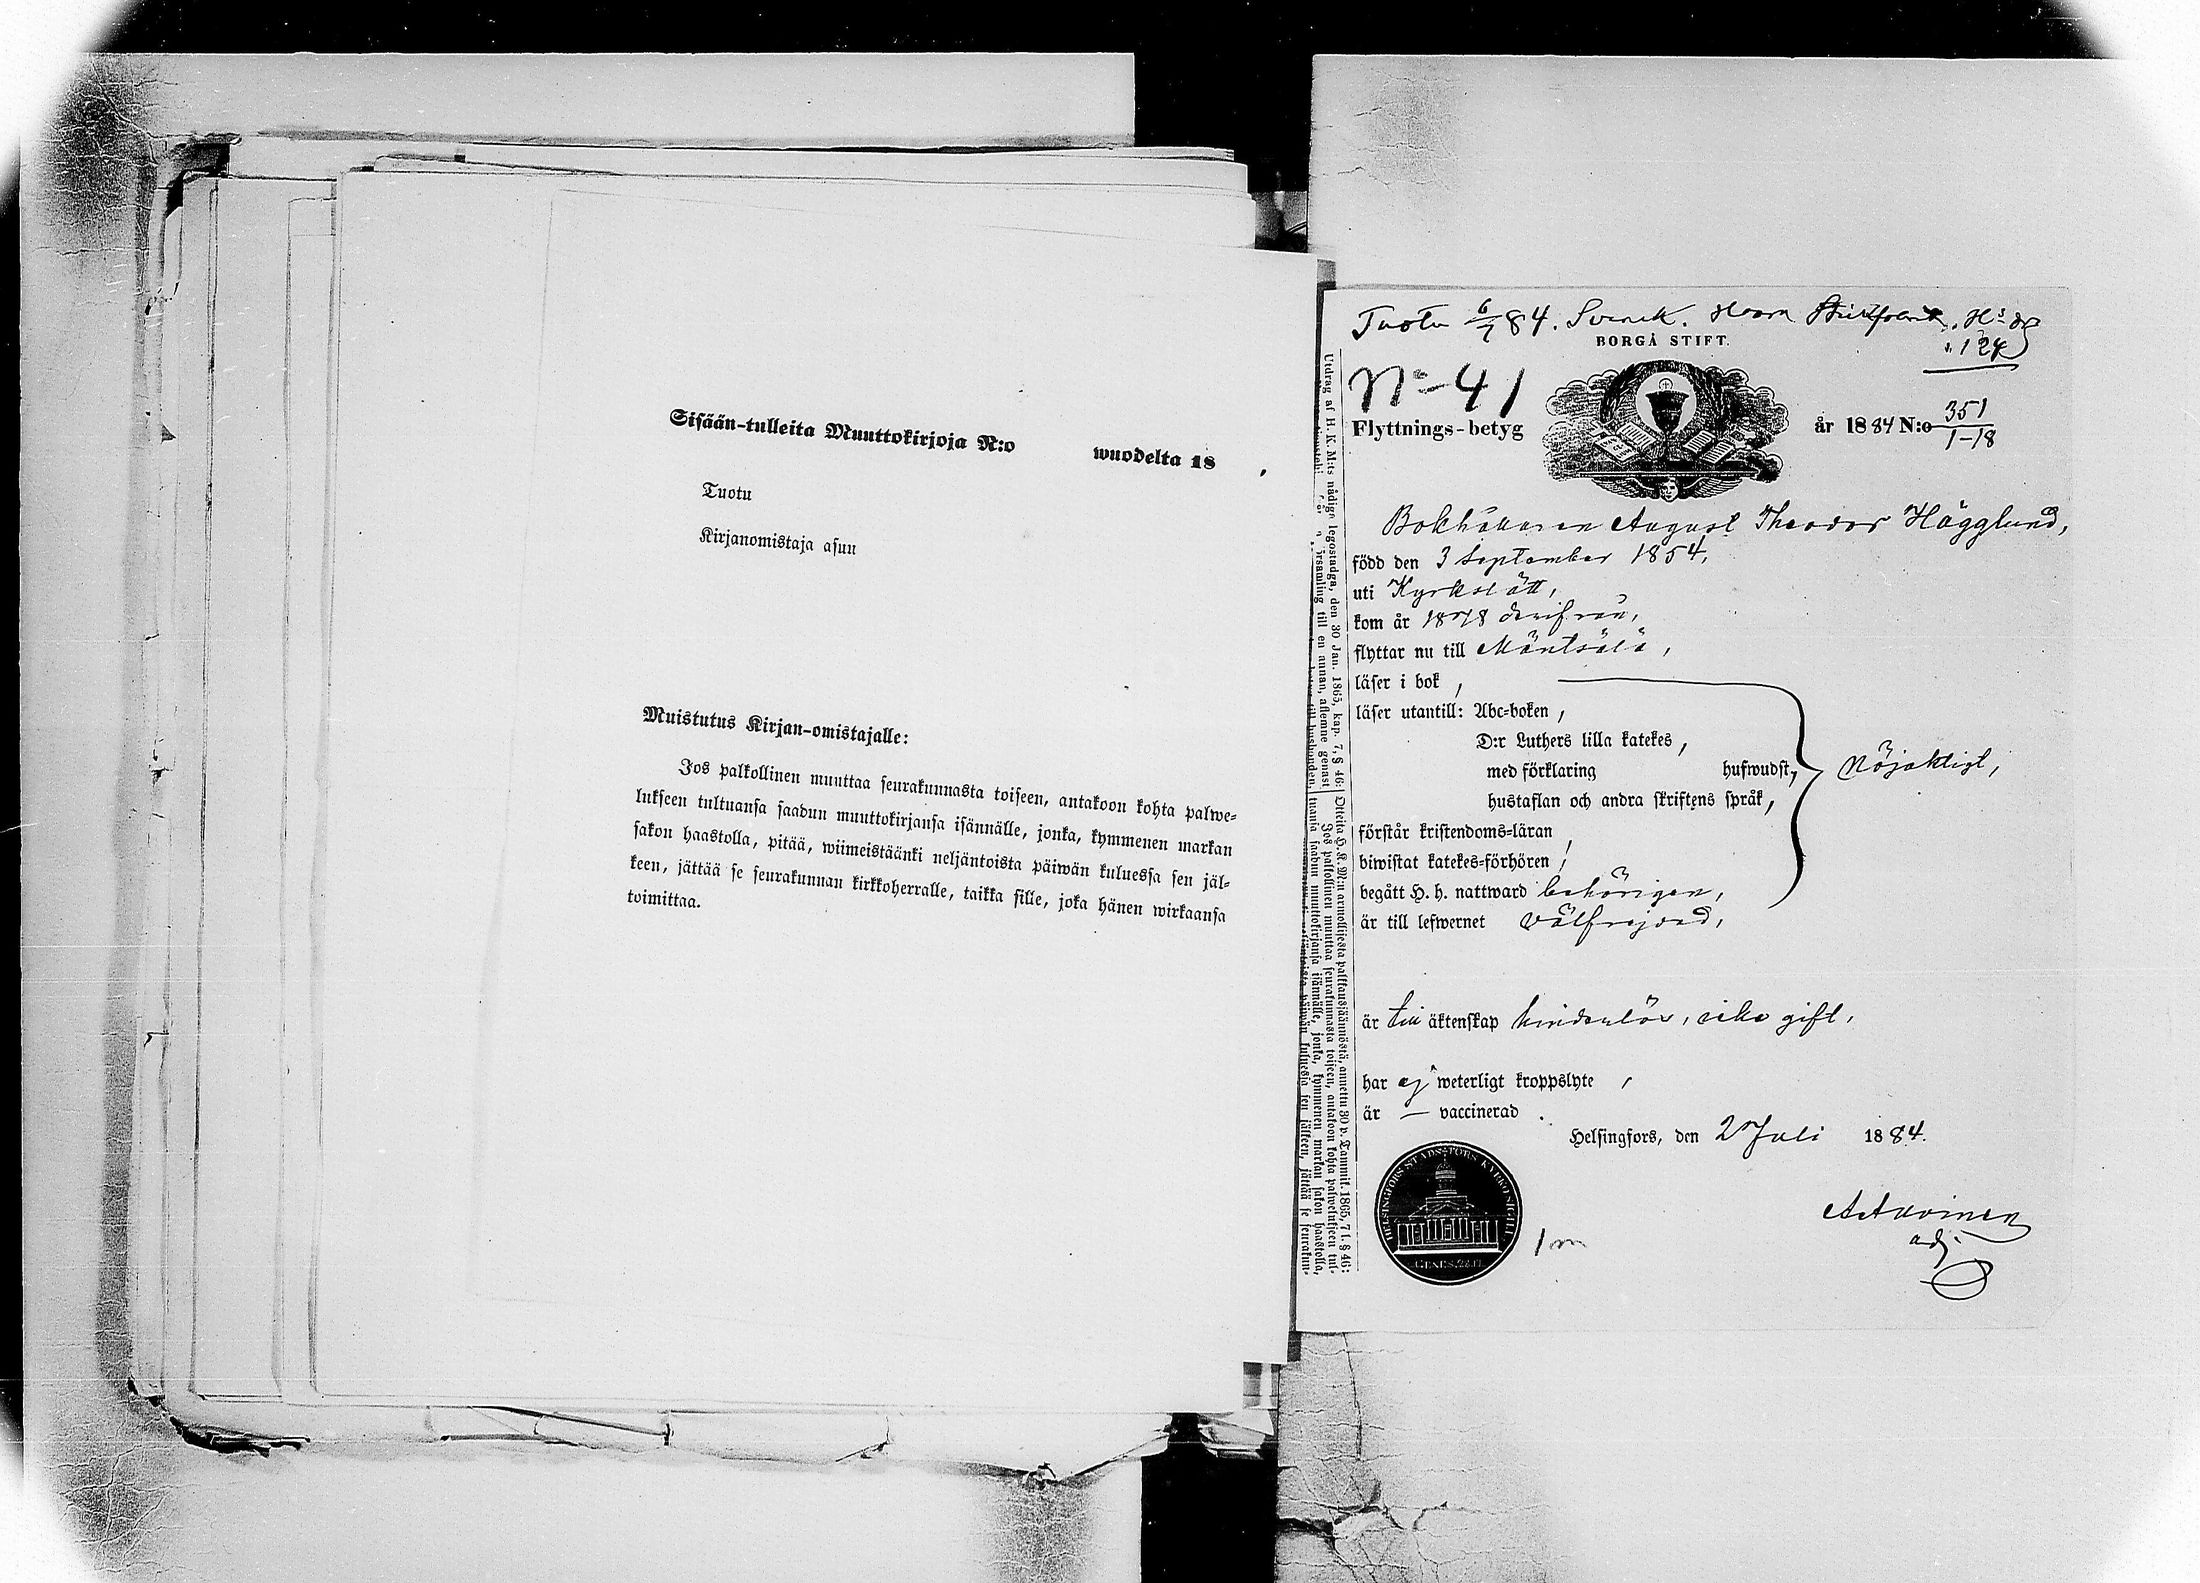 Sisään-tulleita Muuttokirjoja N:o wuodelta 18 .
Tuotu
Kirjanomistaja asuu
Muistutus Kirjan-omistajalle:
Jos palkollinen muuttaa seurakunnasta toiseen, antakoon kohta palwe=
lukseen tultuansa saadun muuttokirjansa isännälle, jonka, kymmenen markan
sakon haastolla, pitää, wiimeistäänki neljäntoista päiwän kuluessa sen jäl=
keen, jättää se seurakunnan kirkkoherralle, taikka sille, joka hänen wirkaansa
toimittaa.
Tuotu 6/7 84.
124
BORGÅ STIFT.
No 41
Flyttnings-betyg år 1884 N:o 351
1-18
Bokhållaren August Theodor Hägglund,
född den 3 September 1854,
uti Kyrkslätt,
kom år 1878 derifrån,
flyttar nu till Mäntsälä,
läser i bok ,
läser utantill: Abc=boken ,
D:r Luthers lilla katekes ,
med förklaring hufwudst,
hustaflan och andra skriftens språk ,
nöjaktigt,
förstår kristendoms=läran ,
biwistat katekes=förhören ,
begått H. h. nattward behörigen,
är till lefwernet välfrejdad,
är till äktenskap hinderlös, icke gift,
har ej weterligt kroppslyte ,
är — vaccinerad .
Helsingfors, den 2 Juli 1884.
adj.
1 m
Utdrag af H. K. M:ts nådiga legostadga, den 30 Jan. 1865, kap. 7, § 46:
Otteita H. K. M:n armollisesta palkkaussäännöstä, annettu 30 p. Tammik. 1865, 7 l. § 46:
Jos palkollinen muuttaa seurakunnasta toiseen, antakoon kohta palwelukseen tul=
tuansa saadun muuttokirjansa isännälle, jonka, kymmenen markan sakon haastolla,